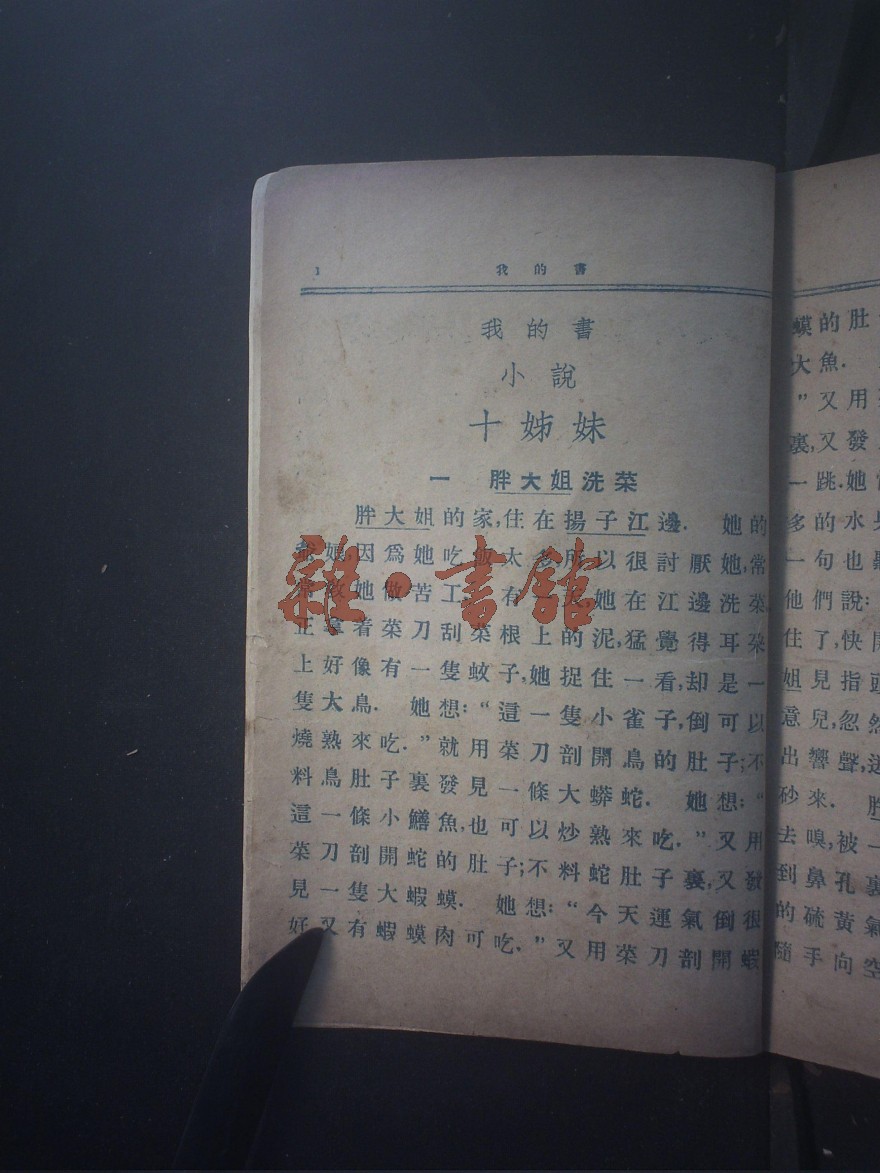 1 我的書
我的書
小說
十姊妹
一 胖大姐洗菜
胖大姐的家,住在揚子江邊. 她的
娘,因為她吃飯太多,所以很討厭她,常
她做苦工. 有她在江邊洗菜,
正拿着菜刀刮菜根上的泥,猛覺得耳朶
上好像有一隻蚊子,她捉住一看,却是一
隻大鳥. 她想:“這一隻小雀子,倒可以
燒熟來吃.”就用菜刀剖開鳥的肚子;不
料鳥肚子裏發見一條大蟒蛇. 她想:“
這一條小鱔魚,也可以炒熟來吃.”又用
菜刀剖開蛇的肚子;不料蛇肚子裏,又發
見一隻大蝦蟆. 她想:“今天運氣倒很
好,又有蝦蟆肉可吃.”又用菜刀剖開蝦
蟆的肚
大魚.
”又用
裏,又發
一跳.她
多的水
一句也
他們說:
住了,快
姐見指
意兒,忽然
出響聲,
砂來.
去嗅,被一
到鼻孔裏
的硫黃氣
隨手向空
雜·書館